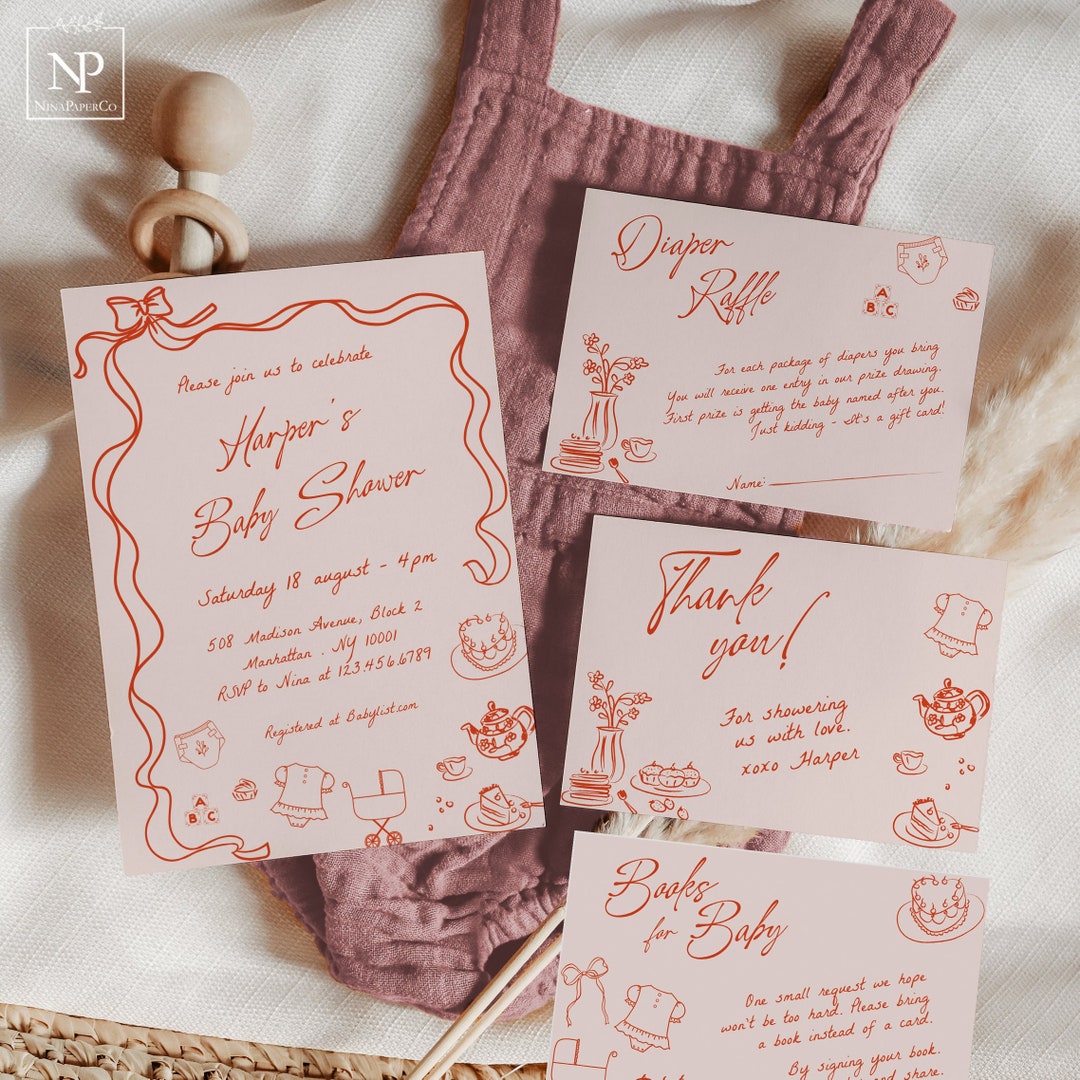 NP
NINAPAPERCO
Please join us to celebrate
Harper's
Baby Shower
Saturday 18 august - 4pm
508 Madison Avenue, Block 2
Manhattan . NY 10001
RSVP to Nina at 123.456.6789
Registered at Babylist.com
A
B C
Diaper
Raffle
A
B C
For each package of diapers you bring
You will receive one entry in our prize drawing.
First prize is getting the baby named after you.
Just kidding - It's a gift card!
Name:
Thank
you!
For showering
us with love.
xoxo Harper
Books
for Baby
One small request we hope
won't be too hard. Please bring
a book instead of a card.
By signing your book.
and share.